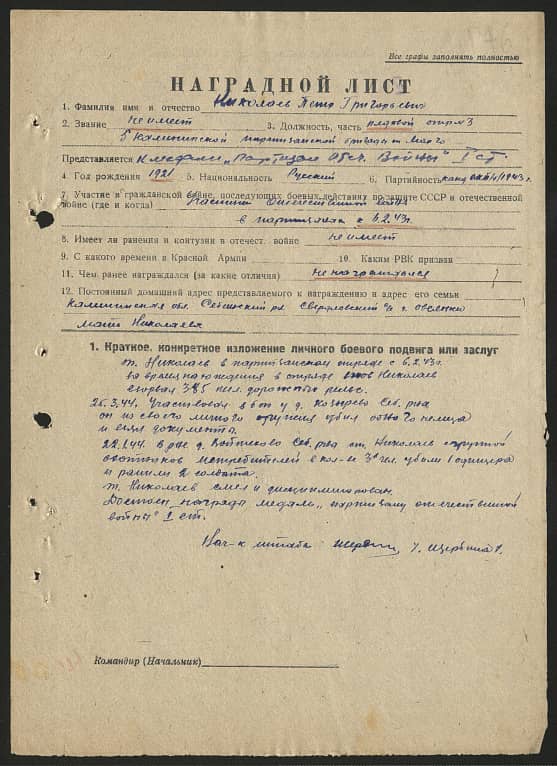 Все графы заполнять полностью
НАГРАДНОЙ ЛИСТ
1. Фамилия имя и отчество Николаев Петр Григорьевич
2. Звание не имеет 3. Должность, часть рядовой отряд 3
5 Калининской партизанской бригады
Представляется к медали „Партизан Отеч. Войны" I ст.
4. Год рождения 1921 5. Национальность Русский 6. Партийность канд. 1943 г.
7. Участие в гражданской войне, последующих боевых действиях по защите СССР и отечественной
войне (где и когда) Отечественной война
в партизанах с 6.2.43г.
8. Имеет ли ранения и контузии в отечест. войне не имеет
9. С какого времени в Красной Армии 10. Каким РВК призван
11. Чем ранее награждался (за какие отличия) Не награждался
12. Постоянный домашний адрес представляемого к награждению и адрес его семьи
Калининская обл. Себежский р-н Свердловский с/с д.
мать Николаева
1. Краткое, конкретное изложение личного боевого подвига или заслуг
т. Николаев в партизанском отряде с 6.2.43г.
за время нахождения в отряде тов Николаев
взорвал жел. дорожных рельс.
26.3.44. Участвовал в бою у д. Козырево Себ. р-на
он из своего личного оружия убил одного немца
и взял документы.
в р-не д. Себ. р-на т. Николаев с группой
в кол-ве 3 чел. убили 1 офицера
и ранили 2 солдата.
т. Николаев смел и дисциплинирован.
Достоин награды медаль „партизану отечественной
войны" I ст.
Нач-к штаба
Командир (Начальник)